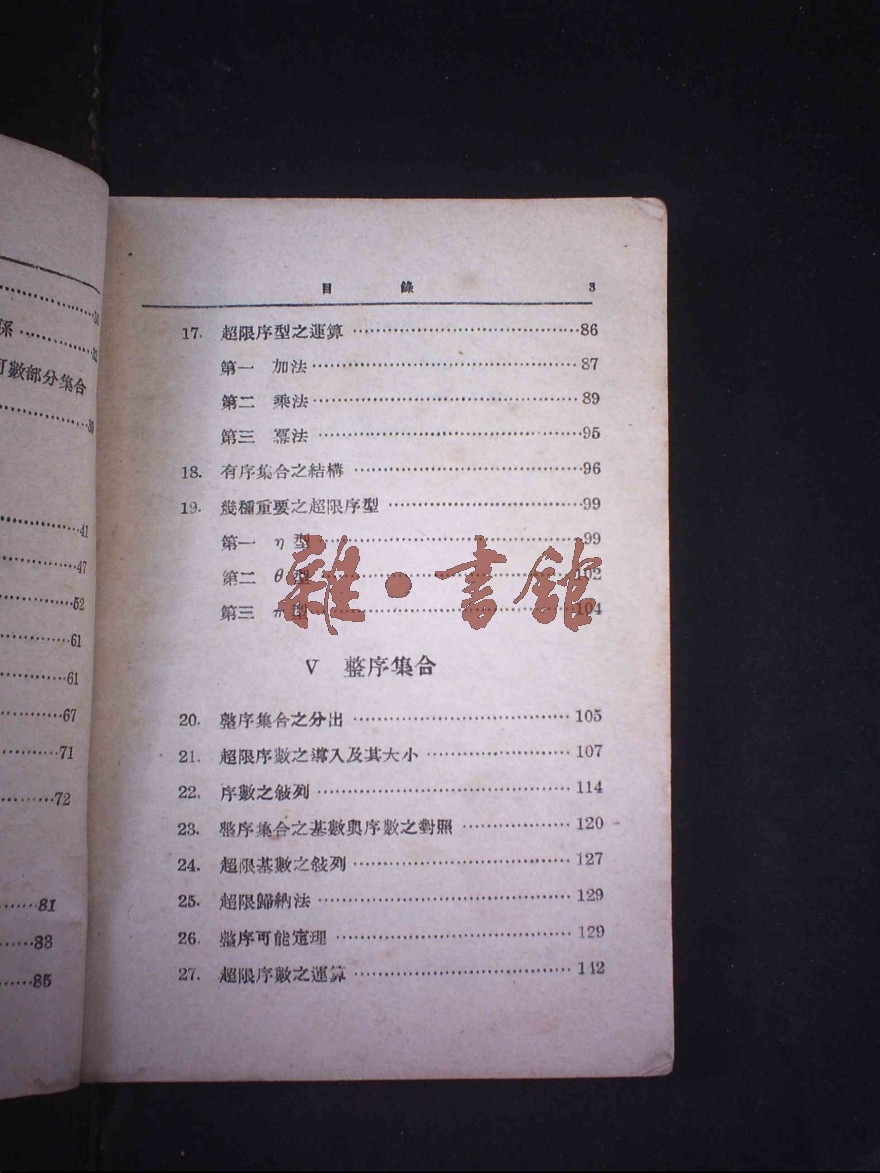 孫
可數部分集合
41
47
52
61
61
67
71
72
81
83
85
目 錄 3
17. 超限序型之運算 86
第一 加法 87
第二 乘法 89
第三 冪法 95
18. 有序集合之結構 96
19. 幾種重要之超限序型 99
第一 η 型 99
第二 θ 型 102
第三 π 型 104
雜·書館
V 整序集合
20. 整序集合之分出 105
21. 超限序數之導入及其大小 107
22. 序數之敍列 114
23. 整序集合之基數與序數之對照 120
24. 超限基數之敍列 127
25. 超限歸納法 129
26. 整序可能定理 129
27. 超限序數之運算 142